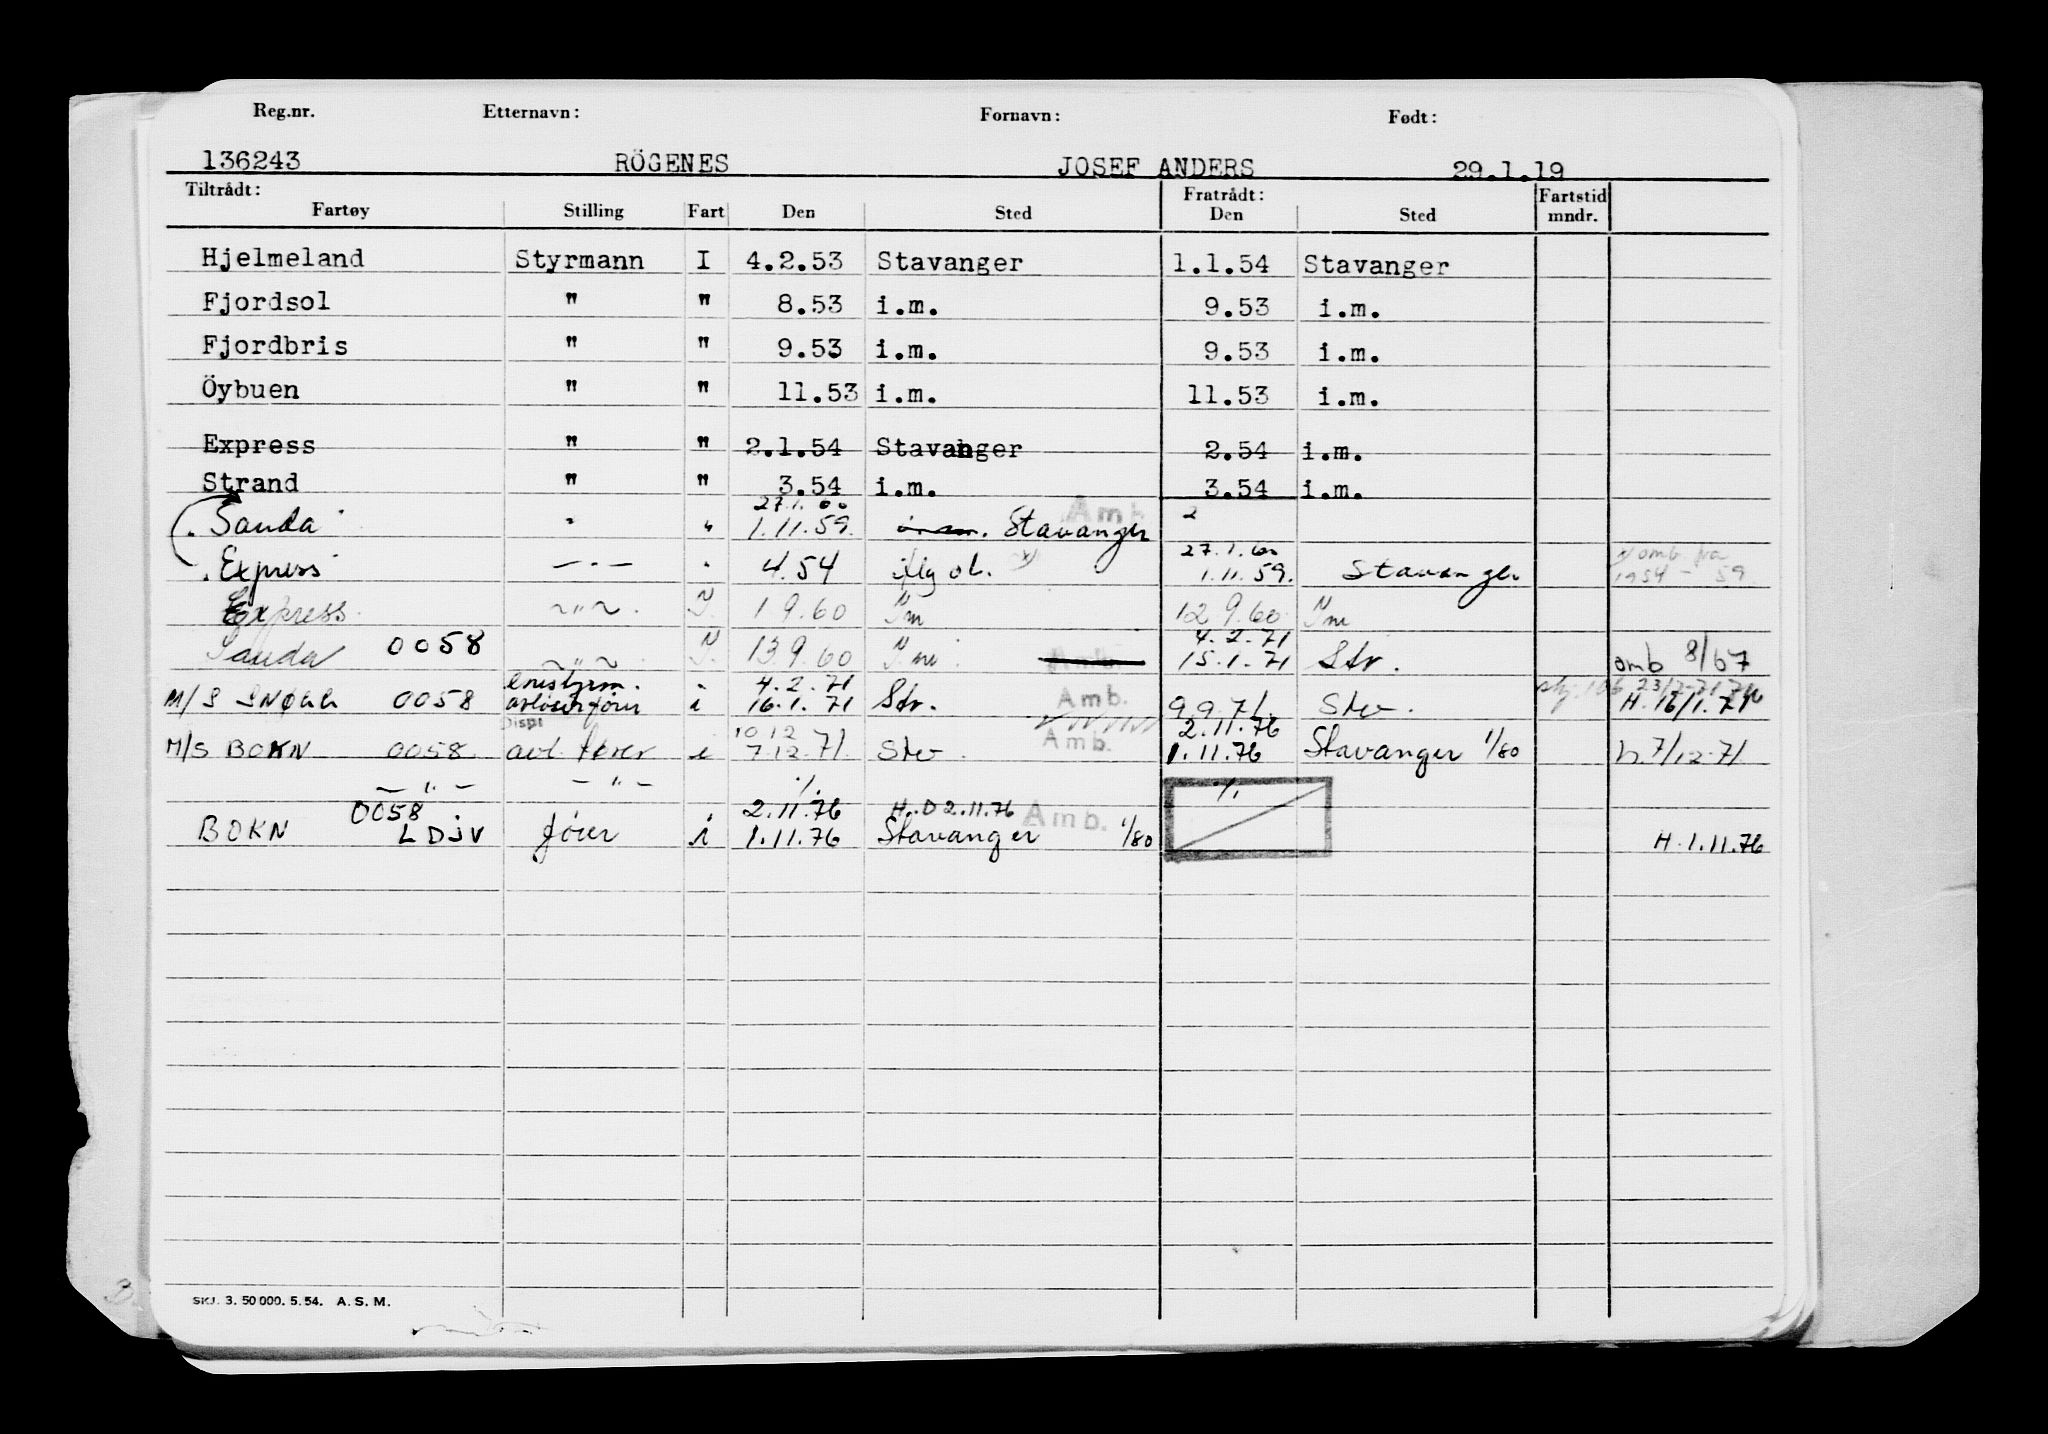 Reg.nr. Etternavn: Fornavn: Født:
136243 RÖGENES JOSEF ANDERS 29.1.19
Tiltrådt: Fratrådt: Fartstid
Fartøy Stilling Fart Den Sted Den Sted mndr.
Hjelmeland Styrmann I 4.2.53 Stavanger 1.1.54 Stavanger
Fjordsol " " 8.53 i.m. 9.53 i.m.
Fjordbris " " 9.53 i.m. 9.53 i.m.
Öybuen " " 11.53 i.m. 11.53 i.m.
Express " " 2.1.54 Stavanger 2.54 i.m.
Strand " " 3.54 i.m. 3.54 i.m.
27.1.60 Amb 2
Sauda " " 1.11.59. Stavanger
27.1.60 amb. fra
Express — " — " 4.54 iflg ol. 1.11.59. Stavanger 1954 - 59
Express. ~"~ . I. 1 9.60 Im 12 9.60 Im
4.2.71
Sauda 0058 ~"~ I. 13.9.60 Im. 15.1.71 Str. omb 8/67
enestyrm. 4.2.71 Amb. 23/2-71
M/S SNØGG 0058 avløserfører i 16.1.71 Str. 9.9.71. Stv. H. 16/1.71
Disp 10 12 2.11.76
M/S BOKN 0058 avl. fører i 7.12.71. Stv. Amb. 1.11.76 Stavanger 1/80 h. 7/12-71
— " — — " — ./. ./.
0058 2.11.76 H.D 2.11.76 Amb.
BOKN LDJV fører i 1.11.76 Stavanger 1/80 H.1.11.76
SKJ. 3. 50 000. 5. 54. A. S. M.